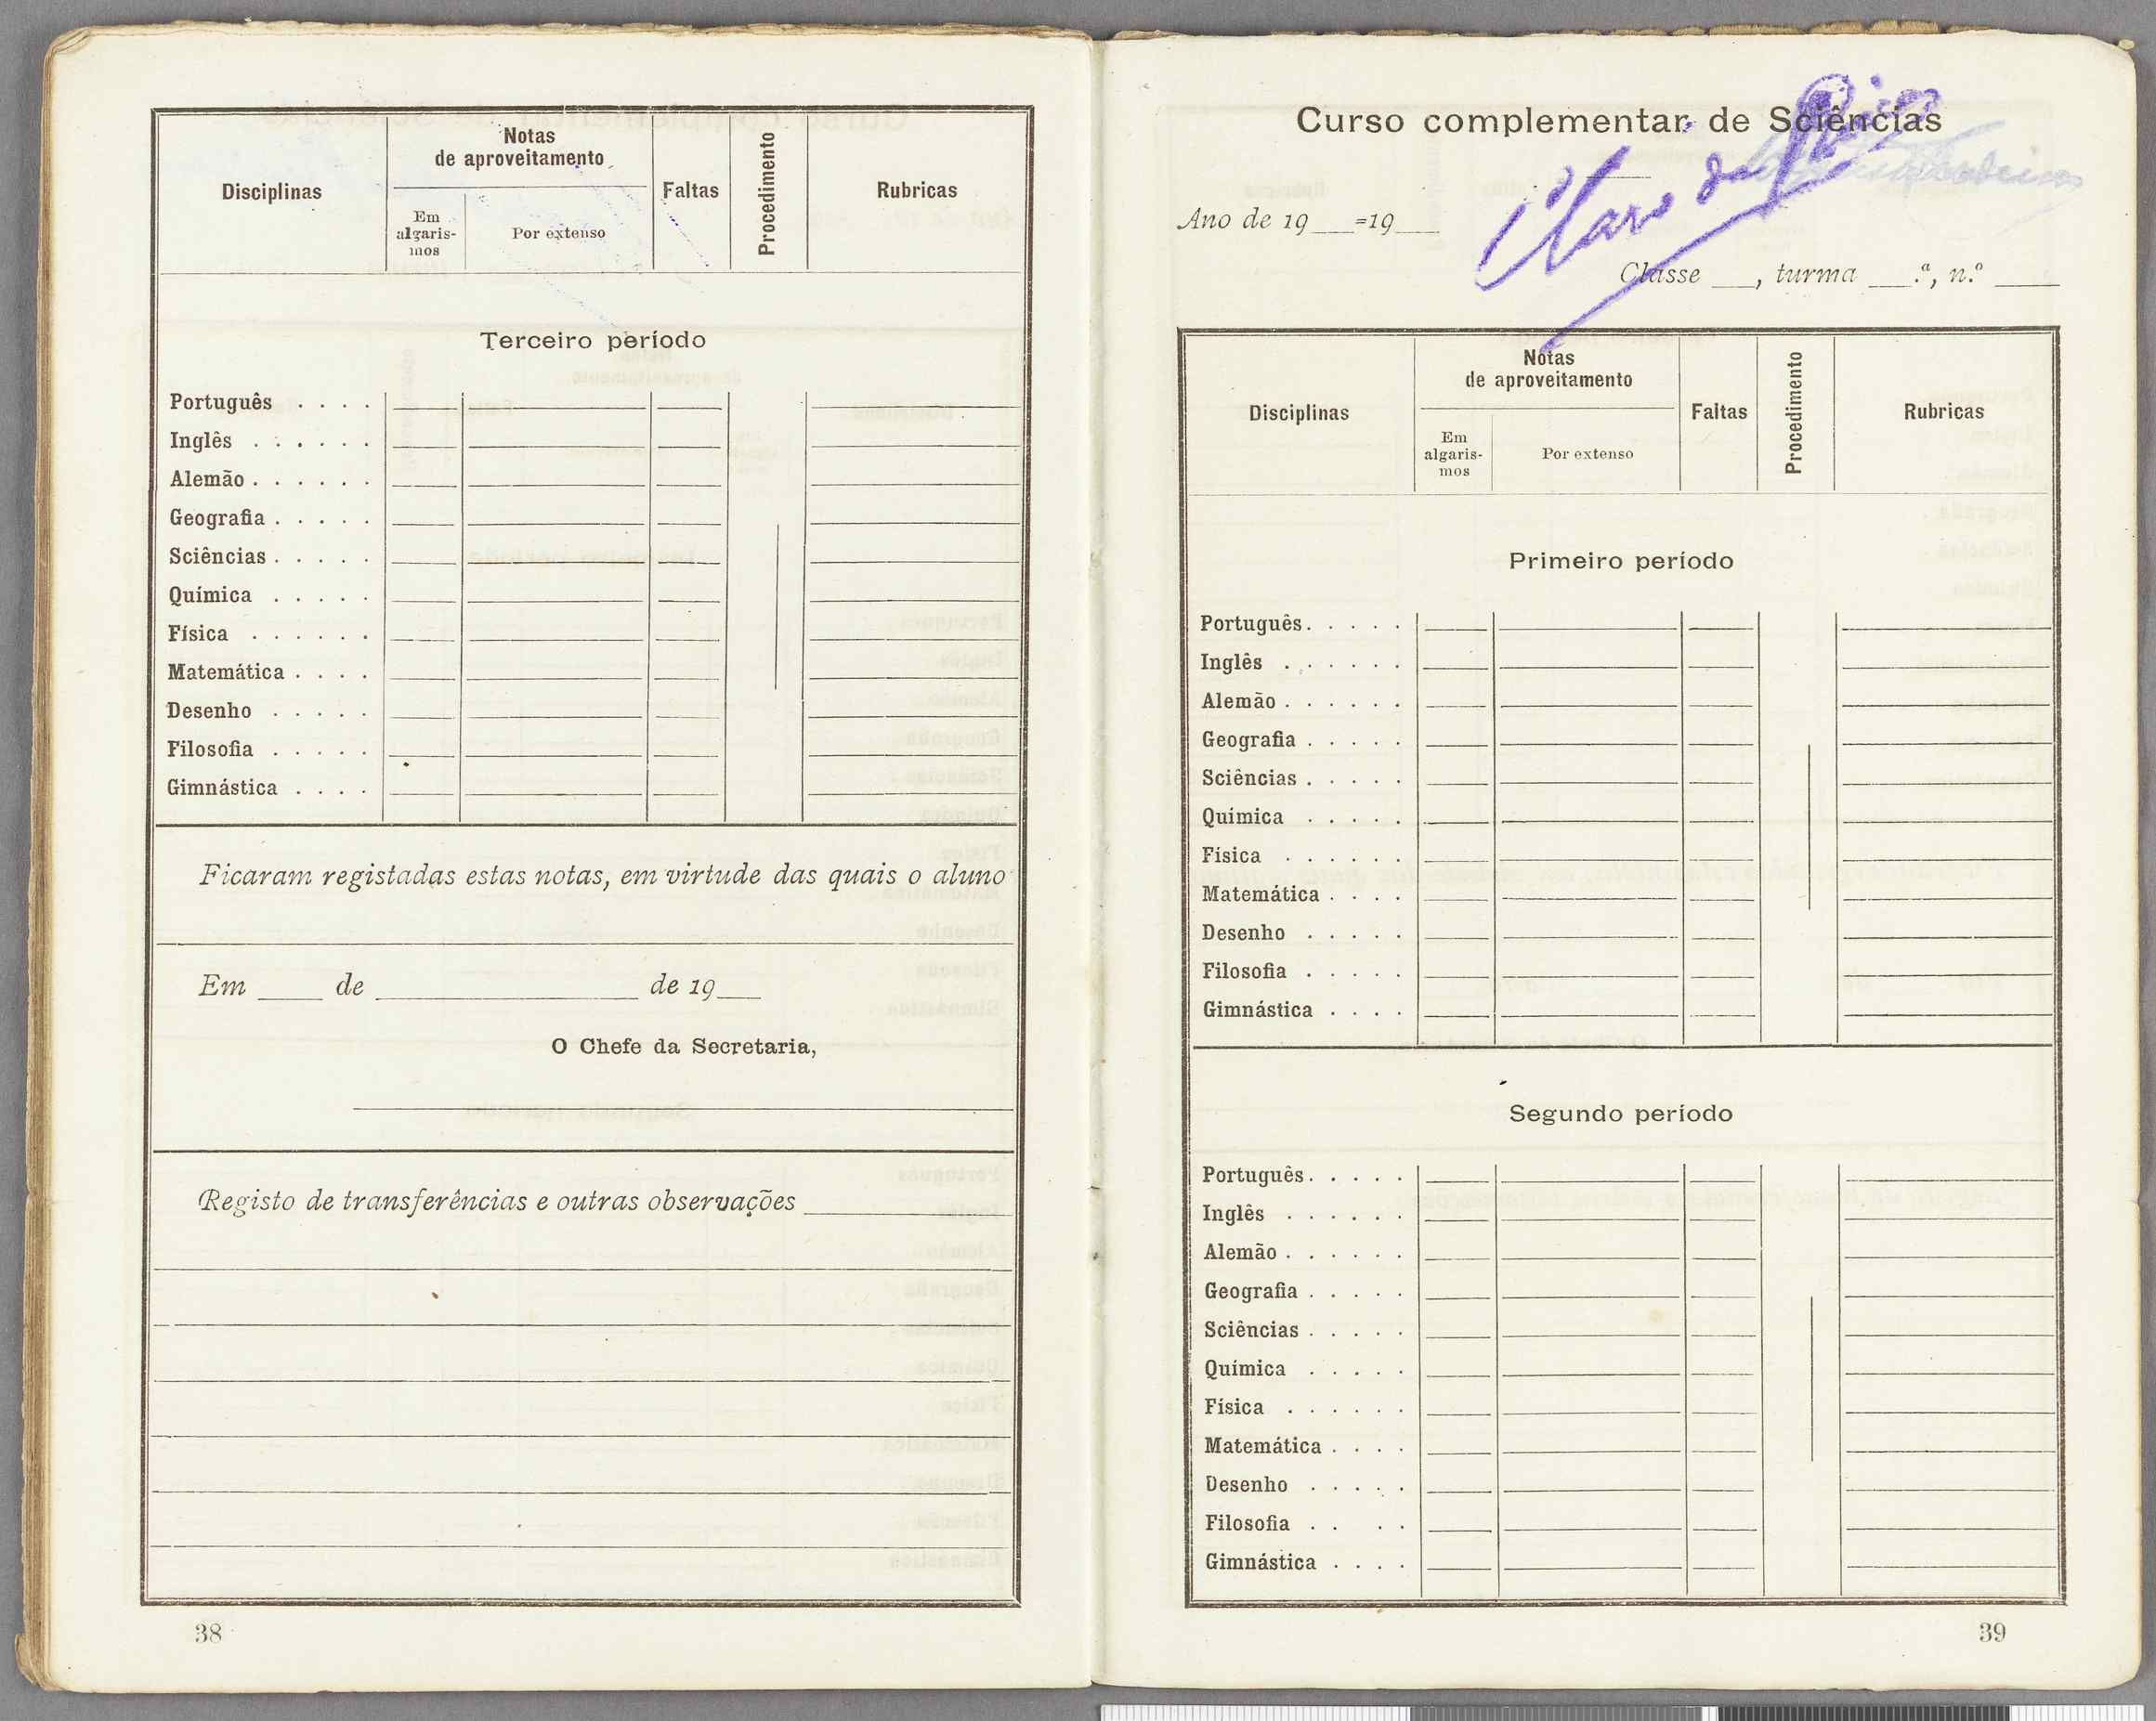 Disciplinas
Notas
de aproveitamento
Em
algaris-
mos
Por extenso
Faltas
Procedimento
Rubricas
Terceiro período
Português . . . .
Inglês . . . . . .
Alemão . . . . . .
Geografia . . . . .
Sciências . . . . .
Química . . . . .
Física . . . . . .
Matemática . . . .
Desenho . . . . .
Filosofia . . . . .
Gimnástica . . . .
Ficaram registadas estas notas, em virtude das quais o aluno
Em ____ de ____ de 19__
O Chefe da Secretaria,
Registo de transferências e outras observações
38
Curso complementar de Sciências
Ano de 19__=19__
Classe __, turma __.ª, n.º ___
Disciplinas
Notas
de aproveitamento
Em
algaris-
mos
Por extenso
Faltas
Procedimento
Rubricas
Primeiro período
Português . . . . .
Inglês . . . . . .
Alemão . . . . . .
Geografia . . . . .
Sciências . . . . .
Química . . . . .
Física . . . . . .
Matemática . . . .
Desenho . . . . .
Filosofia . . . . .
Gimnástica . . . .
Segundo período
Português . . . . .
Inglês . . . . . .
Alemão . . . . . .
Geografia . . . . .
Sciências . . . . .
Química . . . . .
Física . . . . . .
Matemática . . . .
Desenho . . . . .
Filosofia . . . .
Gimnástica . . . .
39